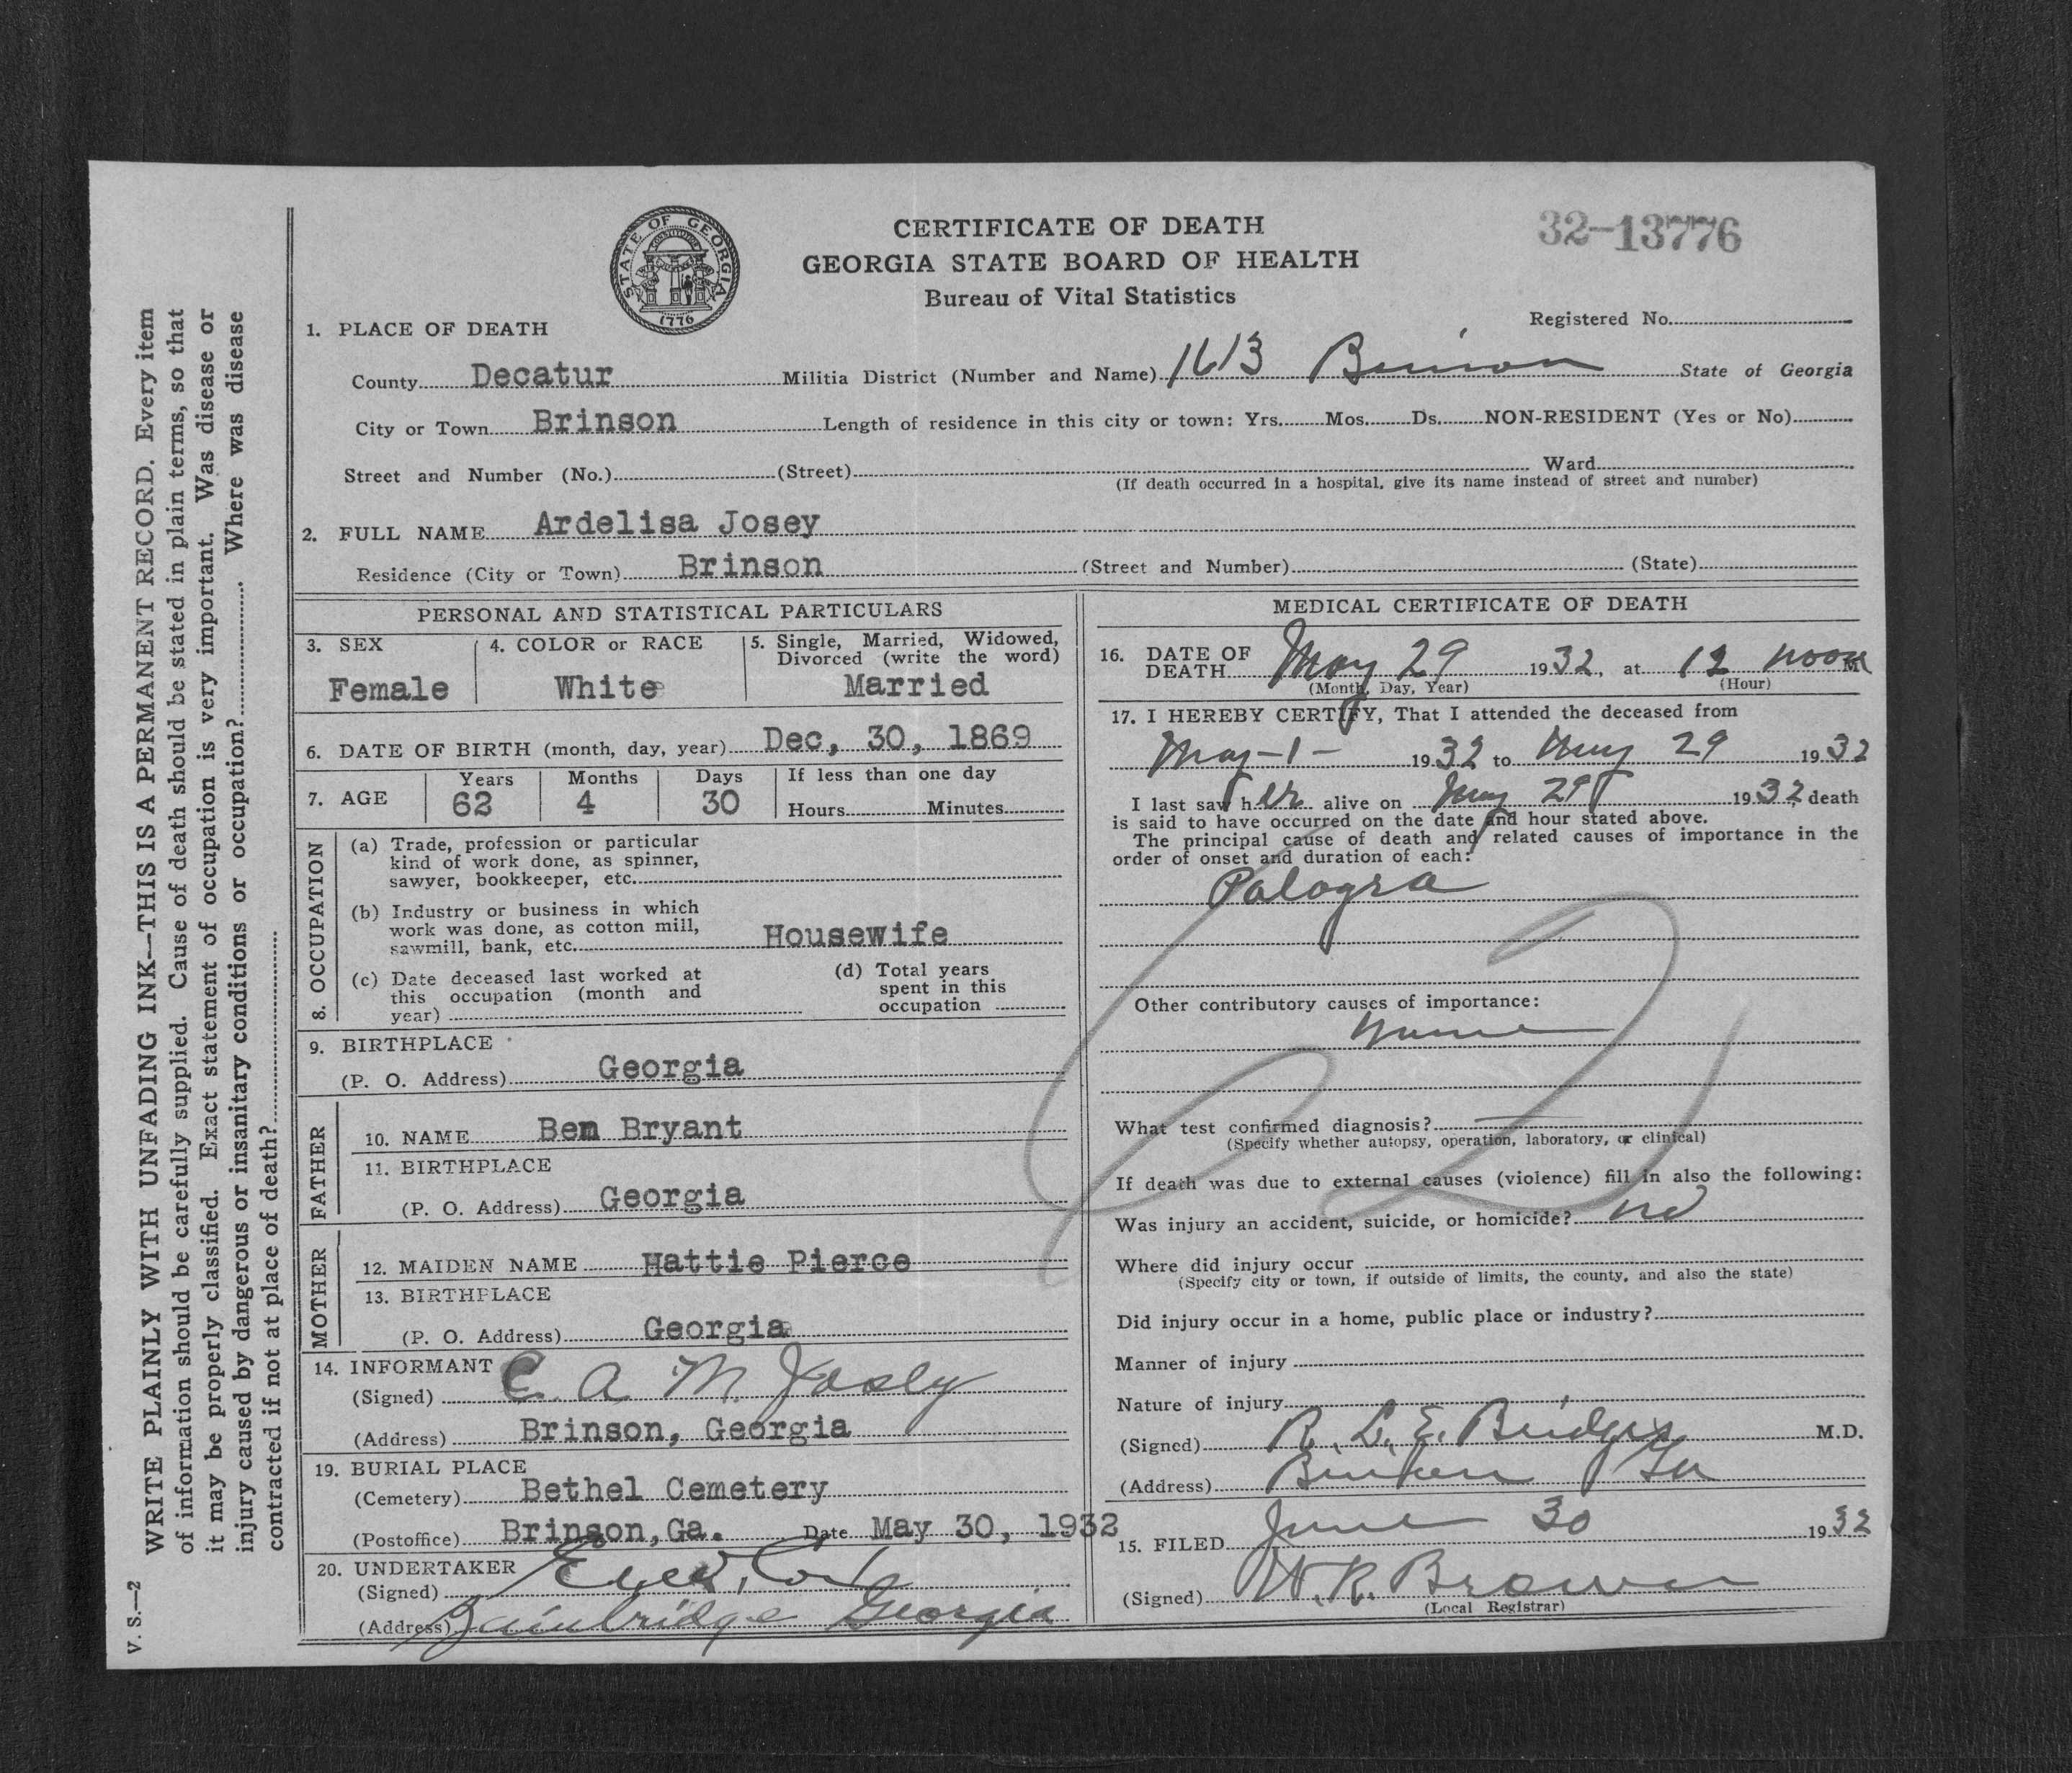 32-13776
STATE OF GEORGIA
CONSTITUTION
1776
CERTIFICATE OF DEATH
GEORGIA STATE BOARD OF HEALTH
Bureau of Vital Statistics
Registered No.
1. PLACE OF DEATH
County Decatur Militia District (Number and Name) 1613 Brinson State of Georgia
City or Town Brinson Length of residence in this city or town: Yrs. Mos. Ds. NON-RESIDENT (Yes or No)
Street and Number (No.) (Street) Ward
(If death occurred in a hospital, give its name instead of street and number)
2. FULL NAME Ardelisa Josey
Residence (City or Town) Brinson (Street and Number) (State)
PERSONAL AND STATISTICAL PARTICULARS
3. SEX 4. COLOR or RACE 5. Single, Married, Widowed,
Divorced (write the word)
Female White Married
6. DATE OF BIRTH (month, day, year) Dec, 30, 1869
Years Months Days If less than one day
7. AGE 62 4 30 Hours Minutes
8. OCCUPATION
(a) Trade, profession or particular
kind of work done, as spinner,
sawyer, bookkeeper, etc.
(b) Industry or business in which
work was done, as cotton mill,
sawmill, bank, etc. Housewife
(c) Date deceased last worked at
this occupation (month and
year)
(d) Total years
spent in this
occupation
9. BIRTHPLACE
(P. O. Address) Georgia
FATHER
10. NAME Ben Bryant
11. BIRTHPLACE
(P. O. Address) Georgia
MOTHER
12. MAIDEN NAME Hattie Pierce
13. BIRTHPLACE
(P. O. Address) Georgia
14. INFORMANT
(Signed) C. A. M. Josey
(Address) Brinson, Georgia
19. BURIAL PLACE
(Cemetery) Bethel Cemetery
(Postoffice) Brinson, Ga. Date May 30, 1932
20. UNDERTAKER
(Signed)
(Address) Bainbridge Georgia
MEDICAL CERTIFICATE OF DEATH
16. DATE OF
DEATH May 29 1932, at 12 noon M
(Month, Day, Year) (Hour)
17. I HEREBY CERTIFY, That I attended the deceased from
May-1- 1932 to May 29 1932
I last saw her alive on May 29 1932 death
is said to have occurred on the date and hour stated above.
The principal cause of death and related causes of importance in the
order of onset and duration of each:
Palogra
Other contributory causes of importance:
None
What test confirmed diagnosis?
(Specify whether autopsy, operation, laboratory, or clinical)
If death was due to external causes (violence) fill in also the following:
Was injury an accident, suicide, or homicide? no
Where did injury occur
(Specify city or town, if outside of limits, the county, and also the state)
Did injury occur in a home, public place or industry?
Manner of injury
Nature of injury
(Signed) R. L. E. Bridges M.D.
(Address) Ga
15. FILED June 30 1932
(Signed) W. R. Brown
(Local Registrar)
WRITE PLAINLY WITH UNFADING INK—THIS IS A PERMANENT RECORD. Every item
of information should be carefully supplied. Cause of death should be stated in plain terms, so that
it may be properly classified. Exact statement of occupation is very important. Was disease or
injury caused by dangerous or insanitary conditions or occupation? Where was disease
contracted if not at place of death?
V. S.—2